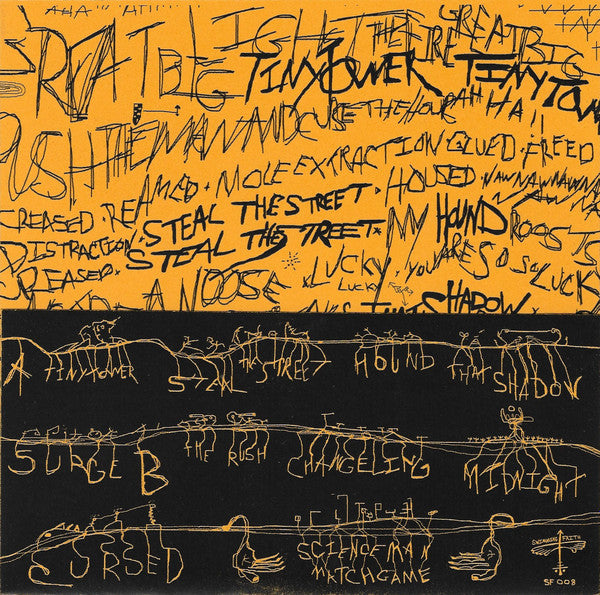 AHA
GREAT BIG LIGHT THE FIRE GREAT BIG
TINY TOWER TINY TOW
USH THE MAN AND CURSE THE HOUR AH HA
CREASED · REAMED · MOLE EXTRACTION GLUED · FREED
DISTRACTION · STEAL THE STREET · HOUSED · NAWNAWNAWNAWNA
CREASED · STEAL THE STREET · MY HOUND ROOSTS
A NOOSE · LUCKY · YOU ARE SO SO LUCK
LUCKY
SHADOW
A TINY TOWER STEAL THE STREET HOUND THAT SHADOW
SURGE B THE RUSH CHANGELING MIDNIGHT
CURSED SCIENCE MAN
MATCHGAME
SWIMMING FAITH
SF 008